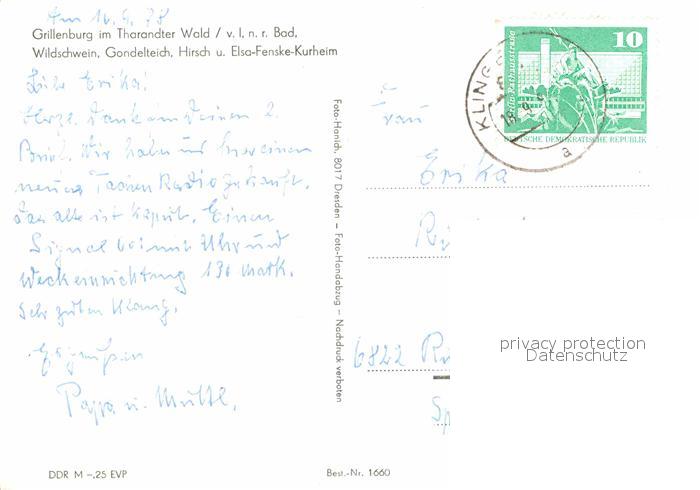 Am 16.9.78
Grillenburg im Tharandter Wald / v. l. n. r. Bad,
Wildschwein, Gondelteich, Hirsch u. Elsa-Fenske-Kurheim
Liebe Erika!
Herzl. Dank Deinen 2.
Brief. Wir haben uns hier einen
neuen Taschen Radio gekauft.
Das alte ist kaput. Einen
Signal mit Uhr und
Weckereinrichtung 130 Mark.
Sehr guten Klang.
Es grüßen
Papa u. Mutti.
DDR M –,25 EVP
Foto-Hanich, 8017 Dresden – Foto-Handabzug – Nachdruck verboten
Best.-Nr. 1660
10
Berlin-Rathausstraße
DEUTSCHE DEMOKRATISCHE REPUBLIK
KLING
a
Frau
Erika
Ri
6822 Ru
Sp
privacy protection
Datenschutz